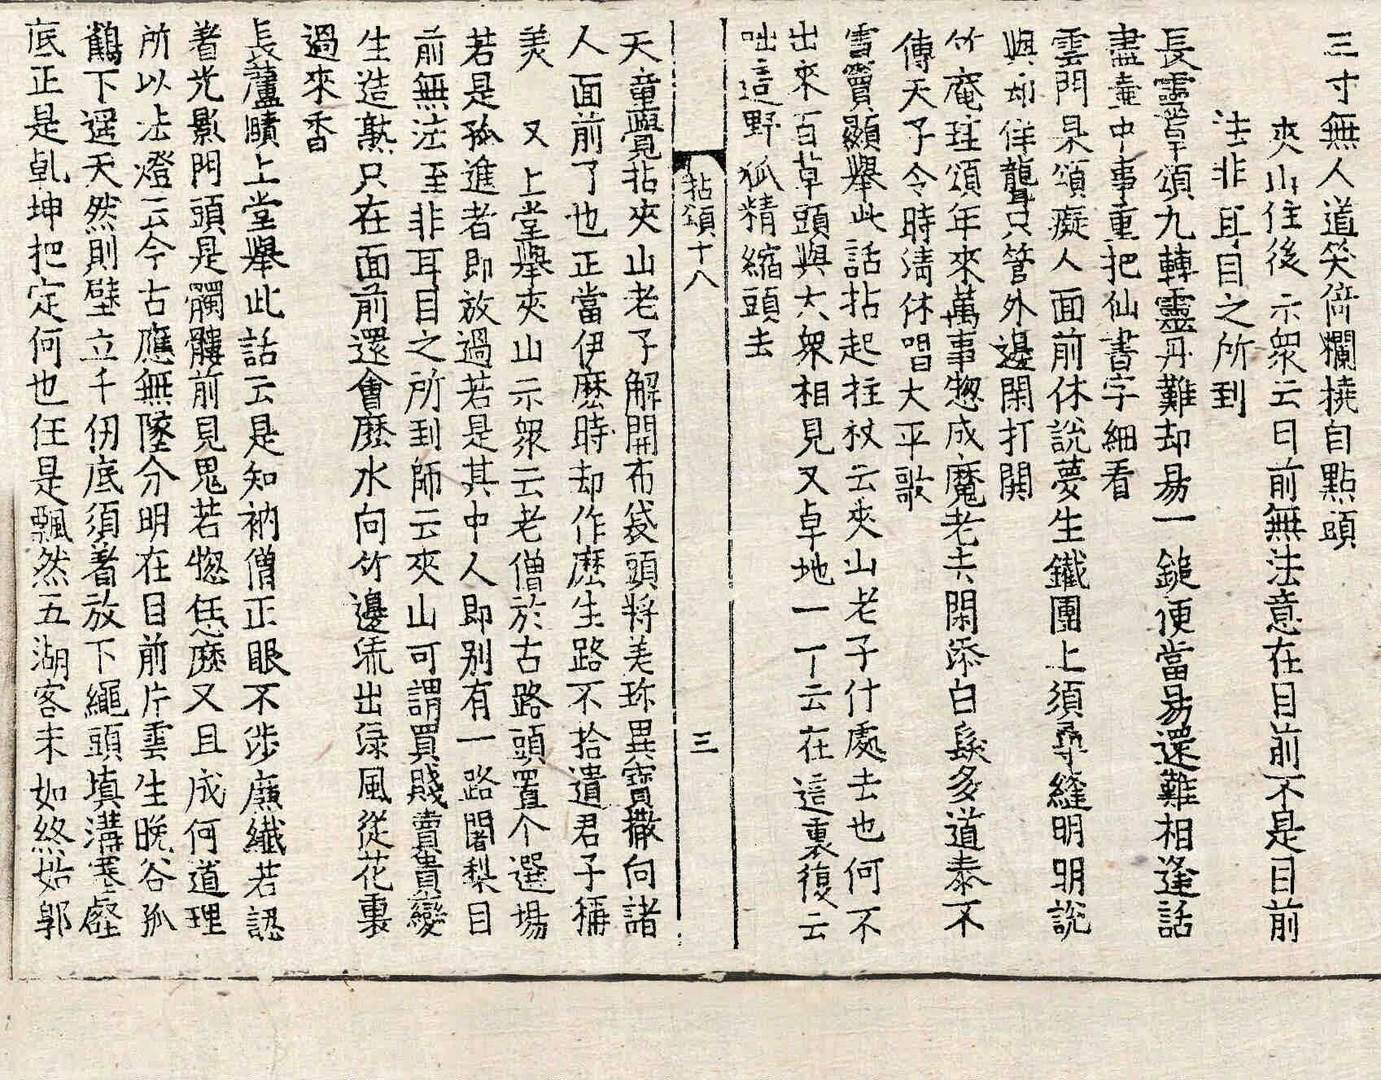 三寸無人道笑倚欄撓自點頭
夾山住後示衆云目前無法意在目前不是目前
法非耳目之所到
長靈卓頌九轉靈丹難却易一鎚便當易還難相逢話
盡壷中事重把仙書字細看
雲門杲頌癡人面前休說夢生鐵團上須尋縫明明說
與却佯聾只管外邊閑打閧
竹庵珪頌年來萬事惣成魔老去閑添白髮多道泰不
傳天子令時清休唱大平歌
雪竇顯舉此話拈起拄杖云夾山老子什處去也何不
出來百草頭與大衆相見又卓地一下云在這裏復云
咄這野狐精縮頭去
拈頌十八 三
天童覺拈夾山老子解開布袋頭将美珎異寶撒向諸
人面前了也正當伊麽時却作麽生路不拾遺君子稱
羙 又上堂舉夾山示衆云老僧於古路頭置个選場
若是孤進者即放過若是其中人即別有一路闍梨目
前無法至非耳目之所到師云夾山可謂買賤賣貴變
生造熟只在面前還會麽水向竹邊流出渌風從花裏
過來香
長蘆賾上堂舉此話云是知衲僧正眼不涉廉纎若認
着光影門頭是髑髏前見鬼若惣恁麽又且成何道理
所以法燈云今古應無墜分明在目前片雲生晚谷孤
鶴下遥天然則壁立千仞底須着放下繩頭填溝塞壑
底正是乹坤把定何也任是飄然五湖客未如終始郭